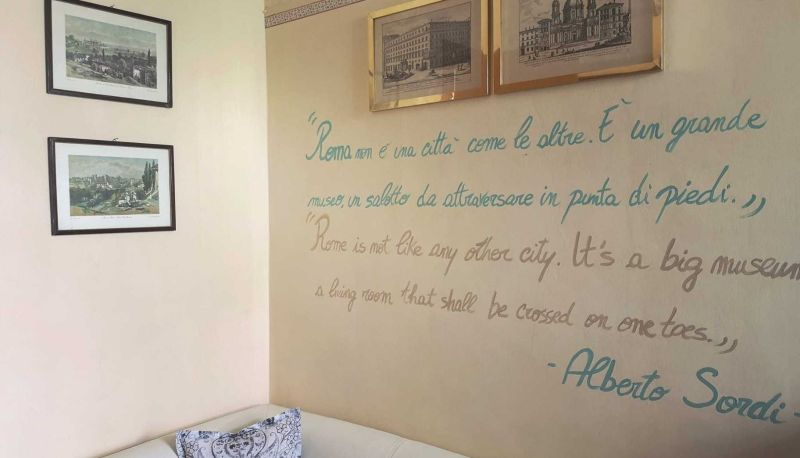 "Roma non é una città come le altre. È un grande
museo, un salotto da attraversare in punta di piedi.,,
"Rome is not like any other city. It's a big museum
a living room that shall be crossed on one toes.,,
- Alberto Sordi -